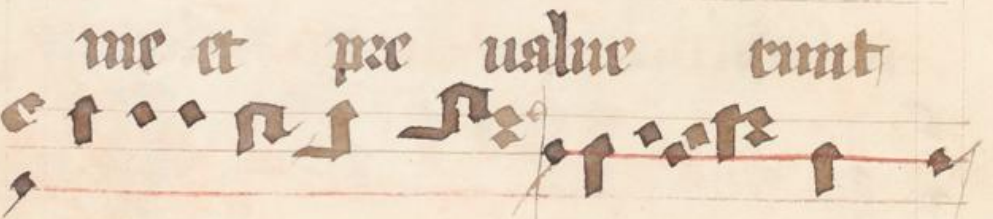 me et pre ualue runt